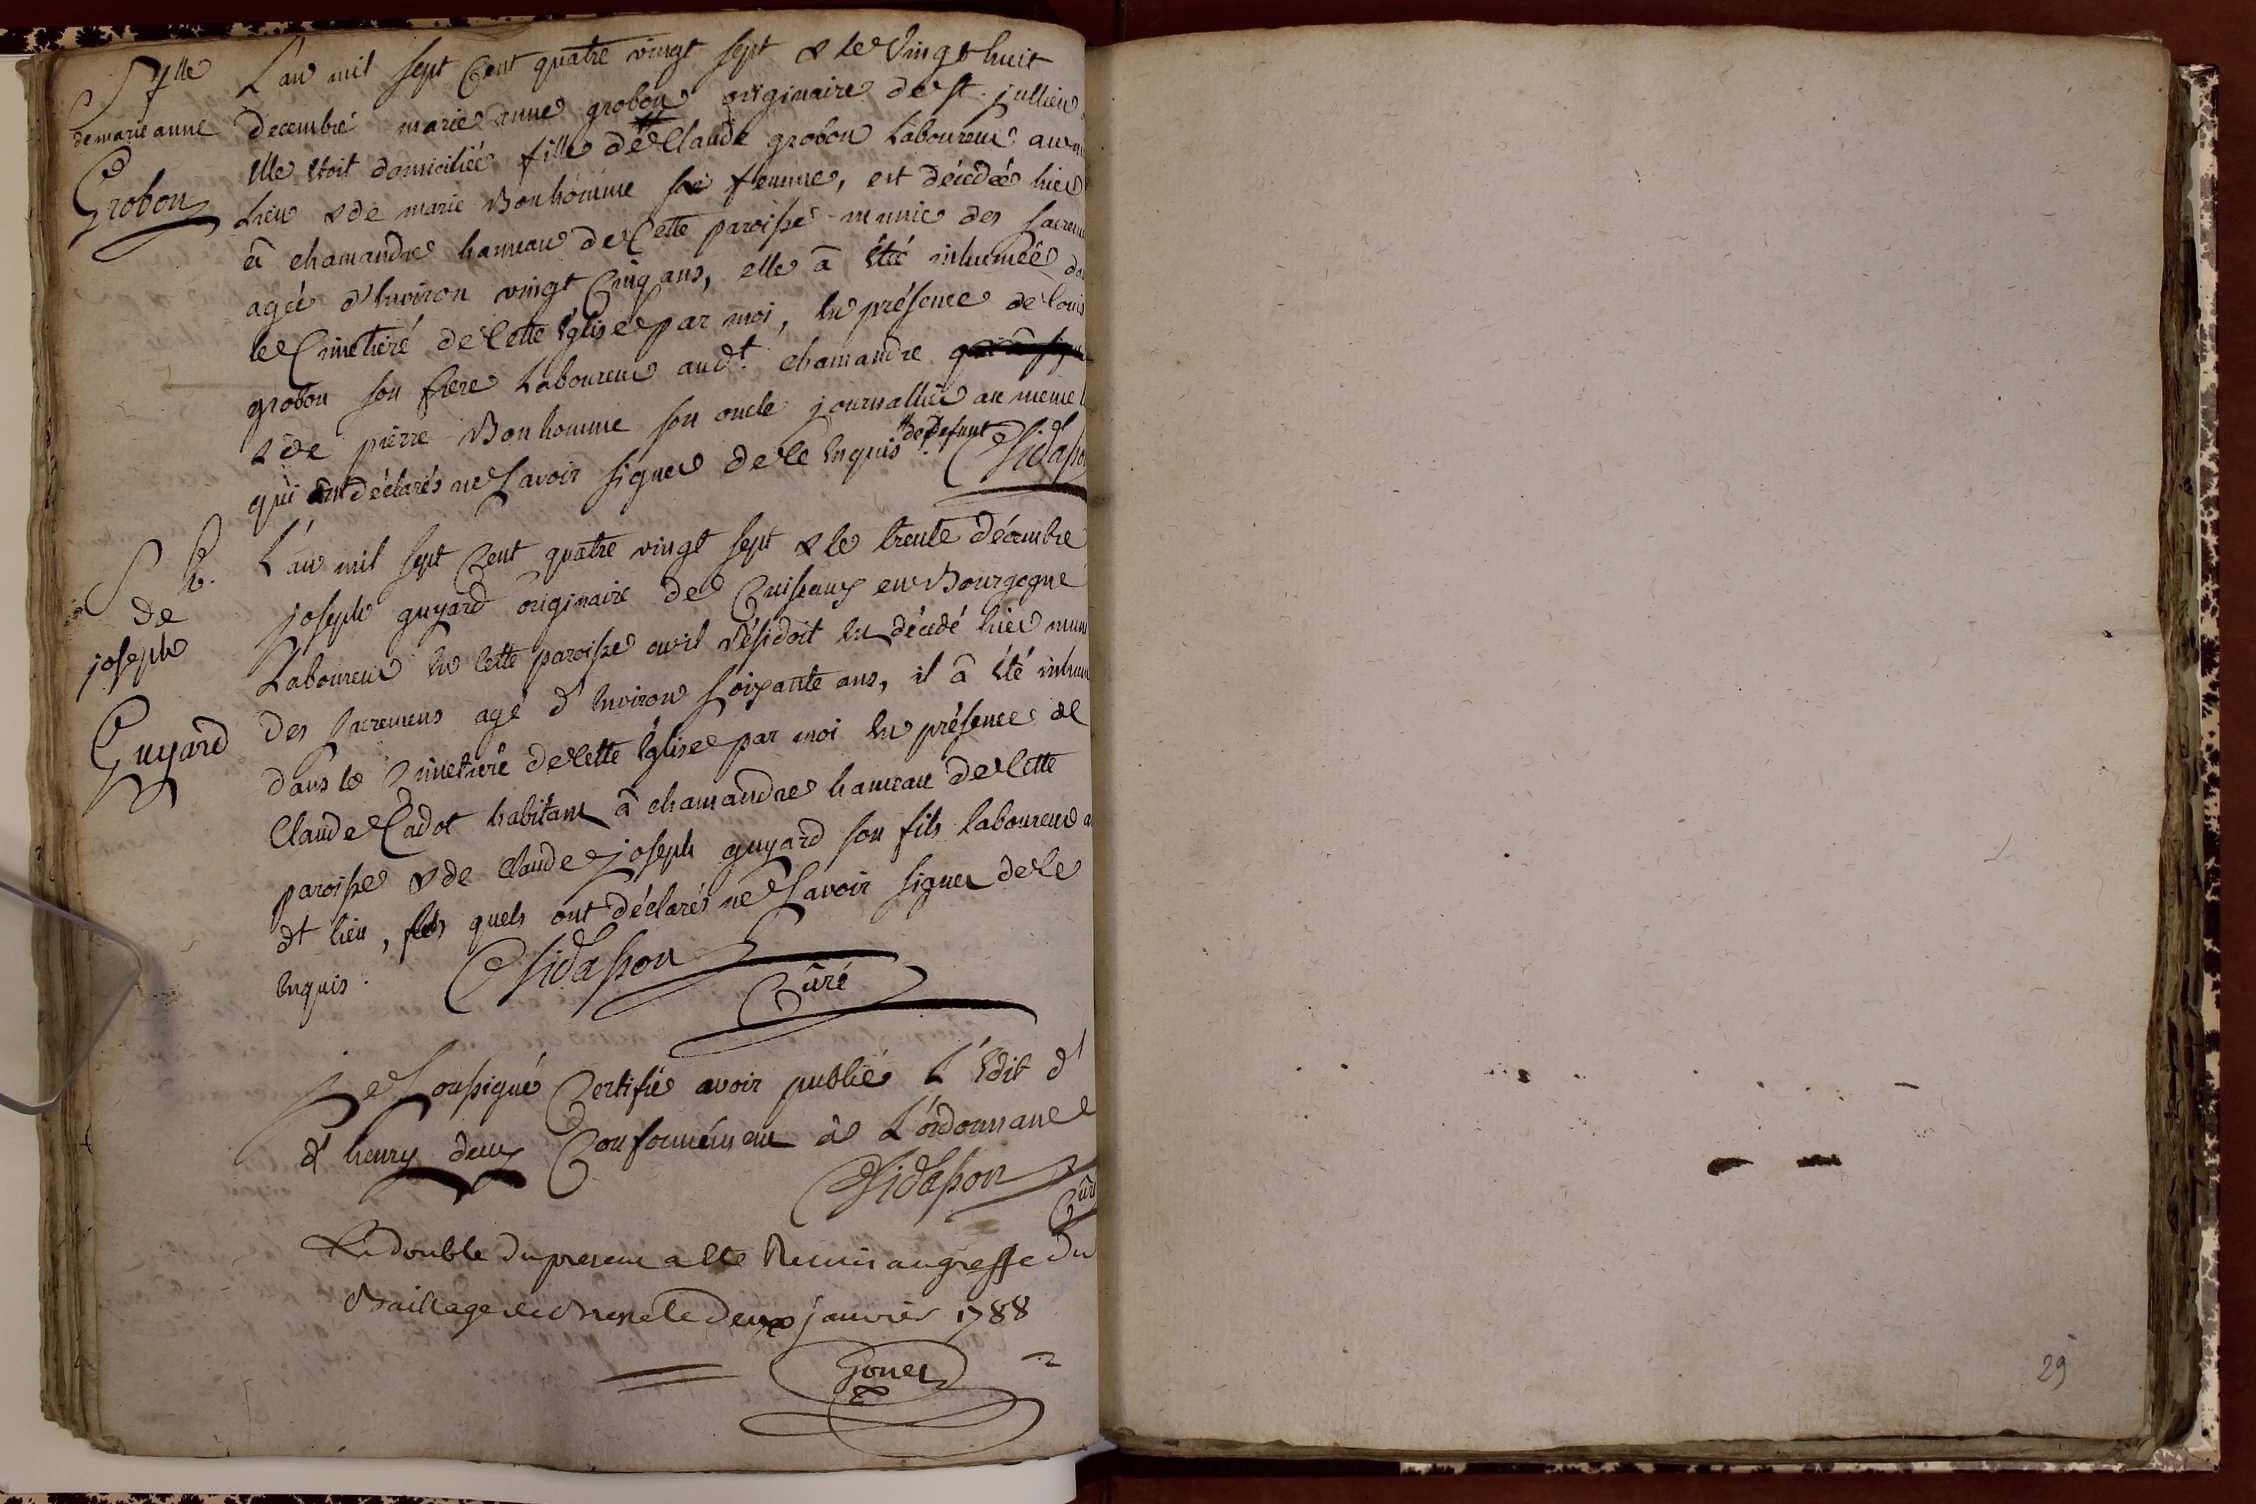 S fille
de marie anne
Grobon
L'an mil sept Cent quatre vingt sept & le Vingt huit
decembre marie anne grobon originaire de st. jullien
elle etoit domiciliée fille de Claude grobon Laboureur au
Lieu & de marie Bonhomme sa femme, est décédée hier
â chamandre hameau de Cette paroisse munie des sacrem
agée d'Environ vingt Cinq ans, elle â été inhumée da
le Cimetieré de Cette Eglise par moi, En présence de Louis
grobon son frere Laboureur aud.t chamandre
& de pierre Bonhomme son oncle journallier au meme l
qui ont déclarés ne Savoir signer de Ce Enquis. # de defunt Sidasson
S
de
joseph
Guyard
L'an mil sept Cent quatre vingt sept & le trente décembre
joseph guyard originaire de Cuiseaux en Bourgogne
Laboureur En Cette paroisse ou il résidoit Est décédé hier muni
des sacremens agé d'Environ Soixante ans, il â été inhum
dans le Cimetieré de Cette Eglise par moi En présence de
Claude Cadot habitant â chamandre hameau de Cette
paroisse & de Claude joseph guyard son fils laboureur a
dt lieu, les quels ont déclarés ne Savoir signer de Ce
Enquis. Sidasson
Cûré
Je Soussigné Certifie avoir publié L'Edit d'
d'henry deux Conformément â L'ordonnance
Sidasson
Cûr
Le double du present a eté Remis au greffe du
Bailliage le deux janvier 1788
Gonet
29